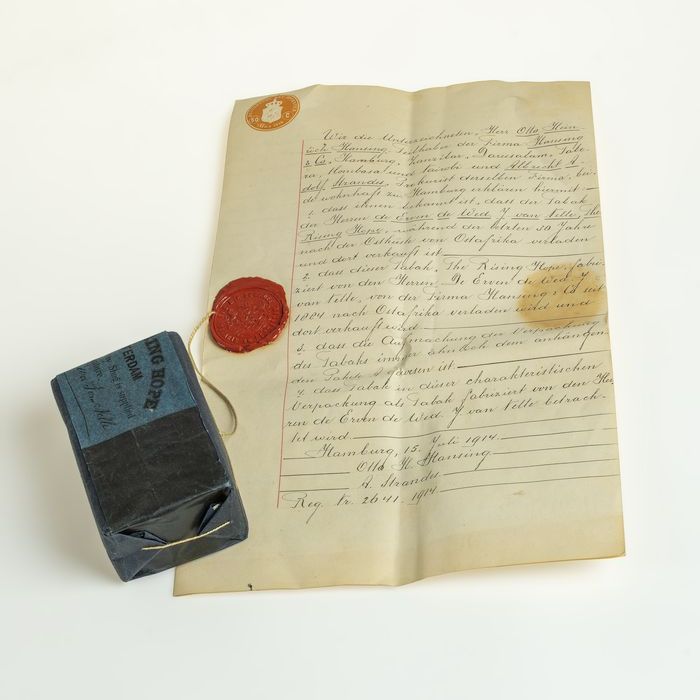 50 C
Wir die Unterzeichneten, Herr Otto Hein-
rich Hansing Teilhaber der Firma Hansing
& Co, Hamburg, Zanzibar, Daressalam,
Mombasa und und Albrecht A-
dolf Strandes, Prokurist derselben Firma, bei-
de wohnhaft zu Hamburg erklären hiermit:
1. dass ihnen bekannt ist, dass der Tabak
der Herren de Erven de Wed. J. van Nelle, The
Rising Hope, während der letzten 30 Jahre
nach der Ostküste von Ostafrika verladen
und dort verkauft ist
2. dass dieser Tabak, The Rising Hope, fabri-
ziert von den Herren De Erven de Wed. J.
van Nelle, von der Firma Hansing & Co seit
1884 nach Ostafrika verladen wird und
dort verkauft wird
3. dass die Aufmachung der Verpackung
des Tabaks immer ähnlich dem anhängen-
den Pakete gewesen ist.
4. dass Tabak in dieser charakteristischen
Verpackung als Tabak fabriziert von den Her-
ren de Erven de Wed. J. van Nelle betrach-
tet wird.
Hamburg, 15. Juli 1914.
Otto H. Hansing
A. Strandes
Reg. Nr. 2641. 1914
ING HOPE
ERDAM
Stuff is supplied
Van Nelle